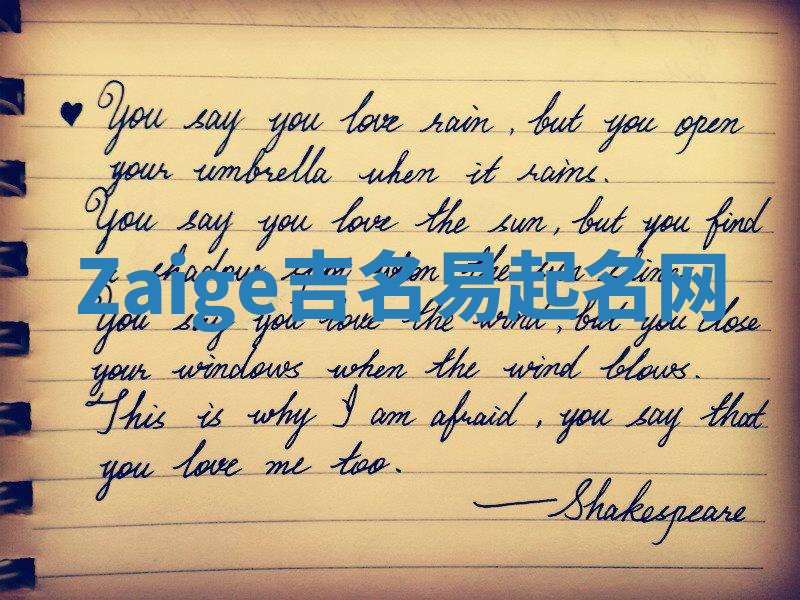 ♥ You say you love rain, but you open
your umbrella when it rains.
You say you love the sun, but you find
a shadow spot when the sun shines.
Zaige吉名易起名网
You say you love the wind, but you close
your windows when the wind blows.
This is why I am afraid, you say that
you love me too.
—Shakespeare